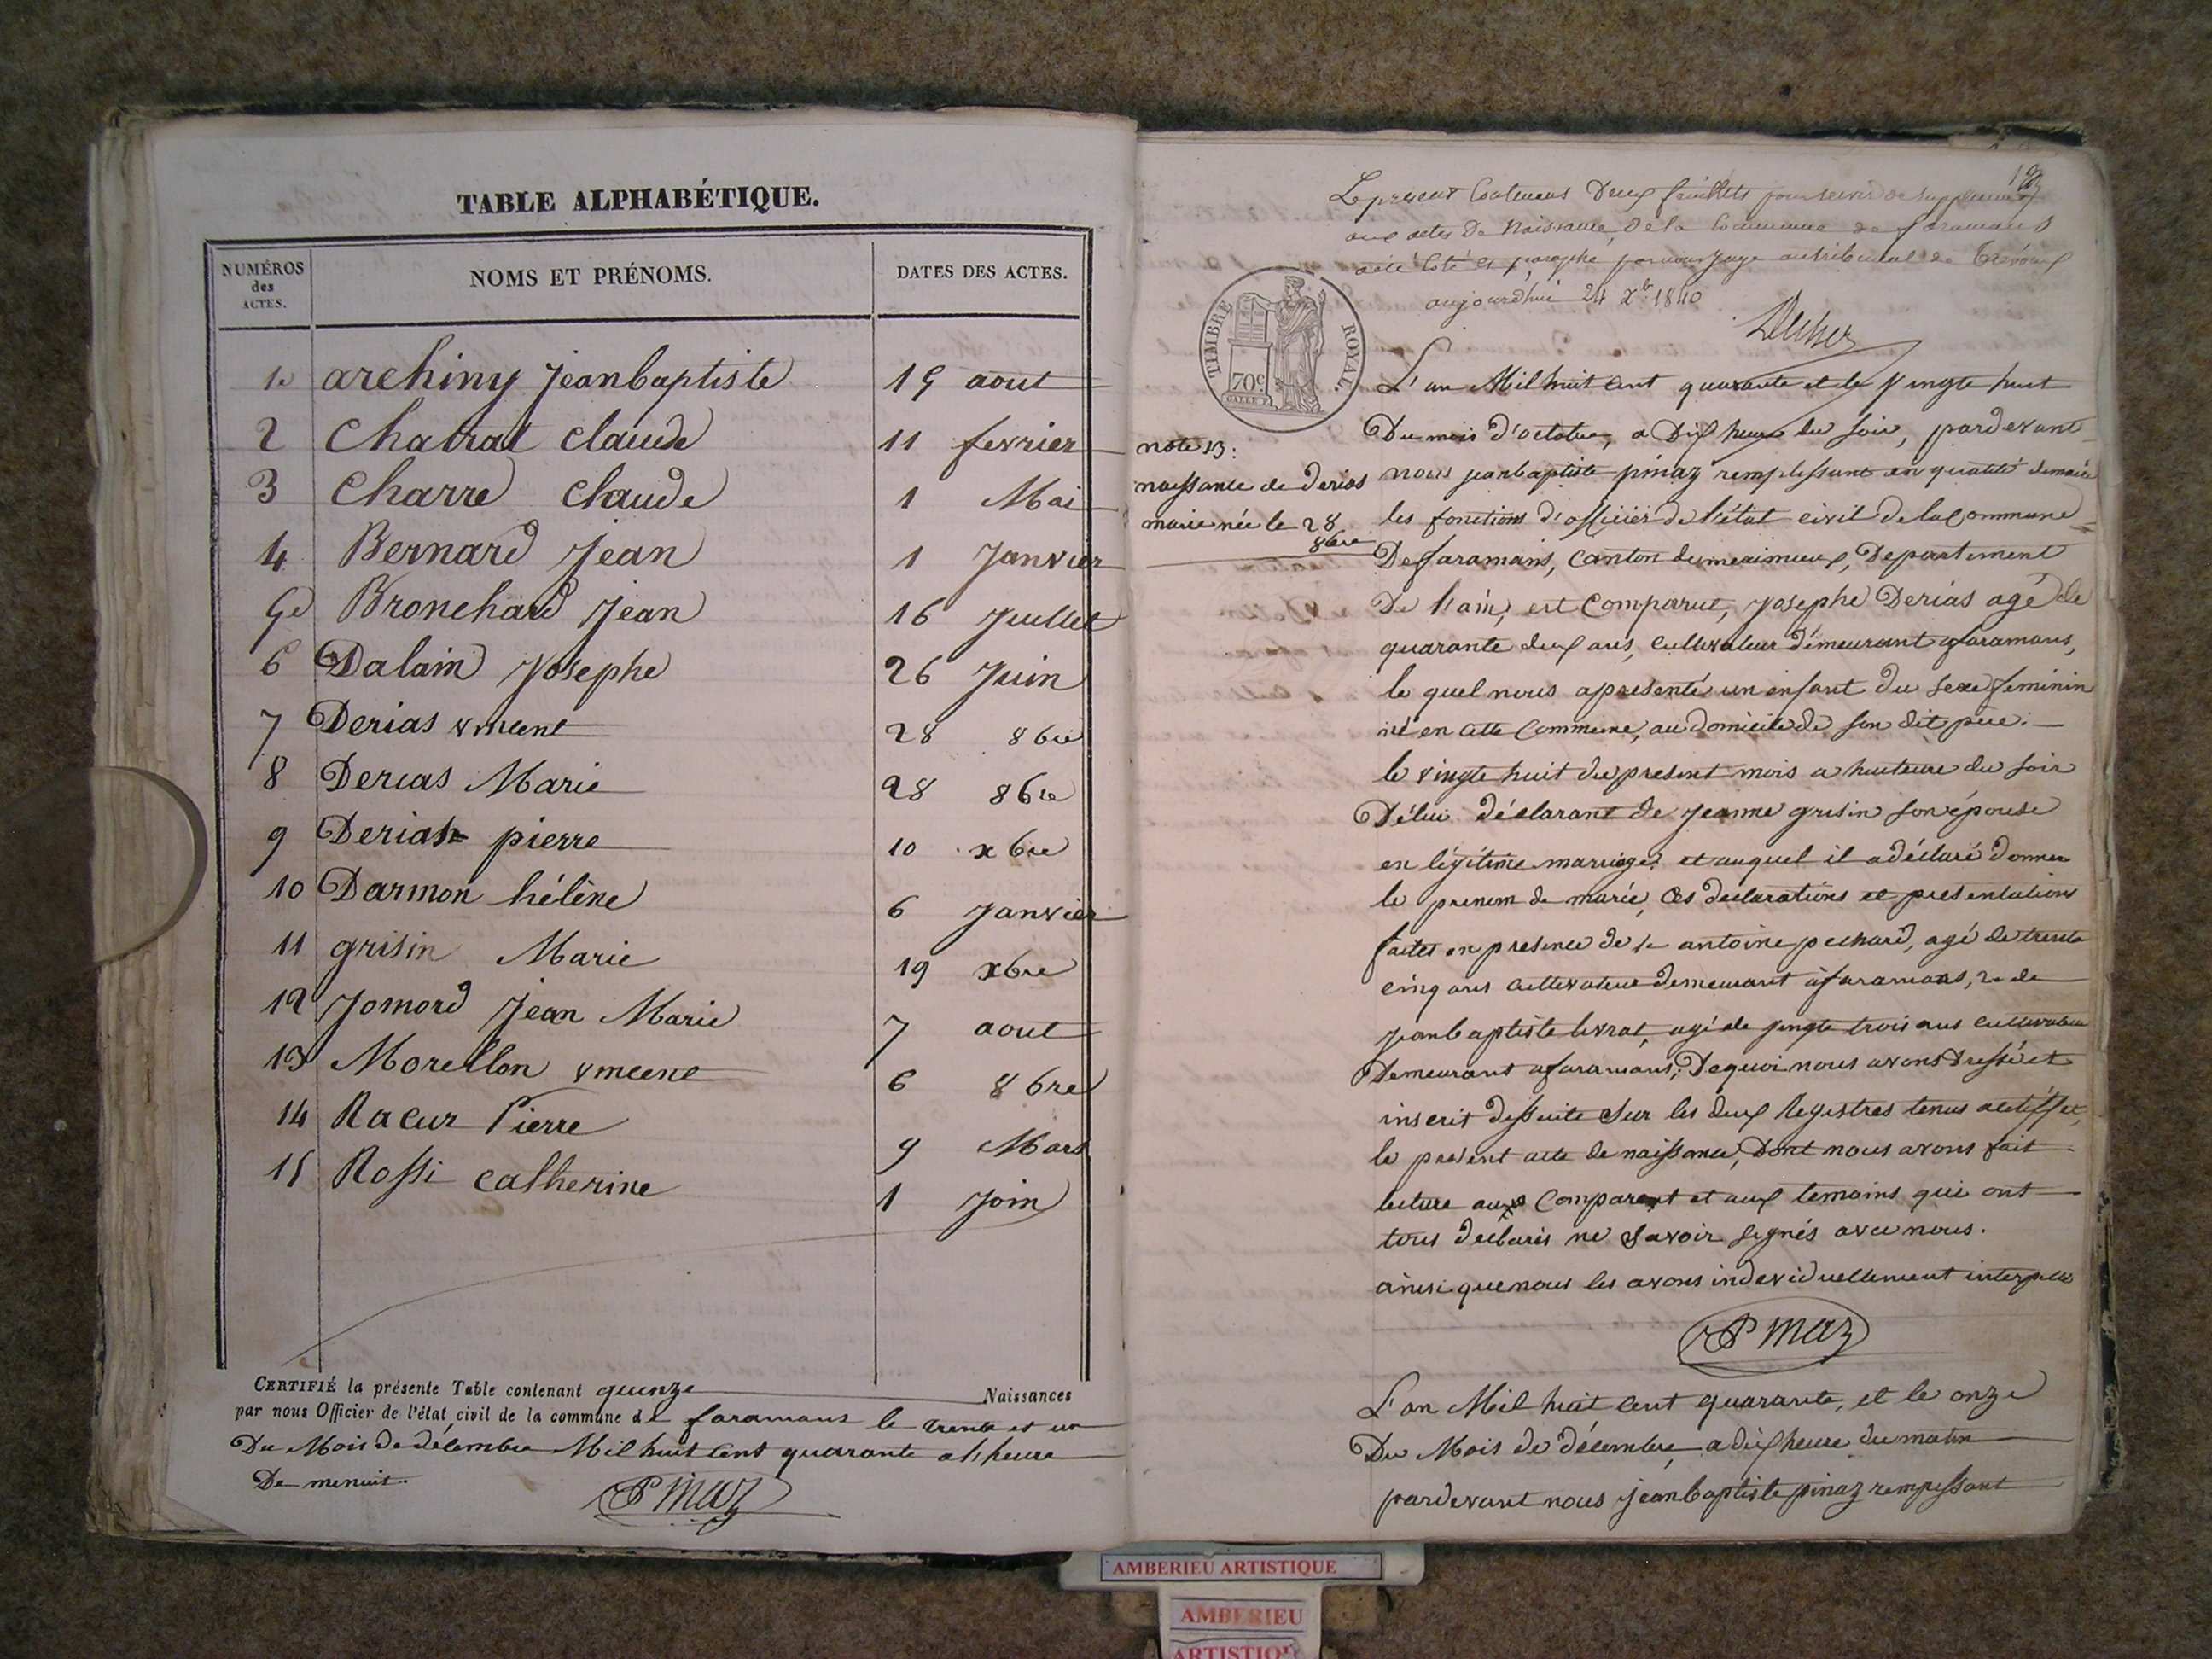 TABLE ALPHABÉTIQUE.
NUMÉROS
des
ACTES.
NOMS ET PRÉNOMS.
DATES DES ACTES.
1e archiny Jeanbaptiste 19 aout
2 Chatrat claude 11 fevrier
3 Charre claude 1 Mai
4 Bernard Jean 1 Janvier
5e Bronchard Jean 16 Juillet
6 Dalain Josephe 26 Juin
7 Derias vincent 28 8bre
8 Derias Marie 28 8bre
9 Derias pierre 10 xbre
10 Darmon hélène 6 Janvier
11 grisin Marie 19 xbre
12 Jomord Jean Marie 7 aout
13 Morellon vincent 6 8bre
14 Racur Pierre 9 Mars
15 Rossi catherine 1 Join
CERTIFIÉ la présente Table contenant quinze Naissances
par nous Officier de l'état civil de la commune de faramans le trente et un
Du Mois de décembre Mil huit cent quarante a l'heure
De menuit.
Pinaz
Le present Contenant Deux feuillets pour servir de supplement
aux actes de Naissance, de la Commune de faramans
a été coté et paraphé par nous Juge au tribunal de Trévoux
aujourd'hui 24 xbr 1840
TIMBRE ROYAL
70c
L'an Mil huit cent quarante et le vingte huit
Du mois d'octobre, a Dix heure du soir, pardevant
nous jeanbaptiste pinaz remplissant en qualité demaire
les fonctions d'officier de l'état civil de la Commune
De faramans, Canton de meximieux, Departement
De l'ain, est Comparut, Josephe Derias agé de
quarante deux ans, cultivateur demeurant afaramans,
le quel nous apresenté un enfant du sexe feminin
né en cette Commune, au domicile de son dit père.
le vingte huit du present mois a huiteure du soir
De lui déclarant de jeanne grisin son épouse
en légitime marriage et auquel il a déclaré donner
le prenom de marie, Ces declarations et presentations
faites en presence de 1e antoine pechard, agé de trente
cinq ans cultivateur demeurant à faramans, 2e de
jeanbaptiste livrat, agé de vingte trois ans cultivateur
Demeurant afaramans; De quoi nous avons dressé et
inscrit de suite Sur les deux Registres tenus a cet effet,
le present acte de naissance, Dont nous avons fait
lecture aux Comparent et aux temoins qui ont
tous declarés ne Savoir signés avec nous.
ainsi que nous les avons individuellement interpellés
Pinaz
note 13:
naissance de Derias
marie née le 28
8bre
L'an Mil huit cent quarante, et le onze
Du Mois de décembre, a dix heure du matin
pardevant nous jeanbaptiste pinaz rempissant
AMBERIEU ARTISTIQUE
AMBERIEU
ARTISTIQUE